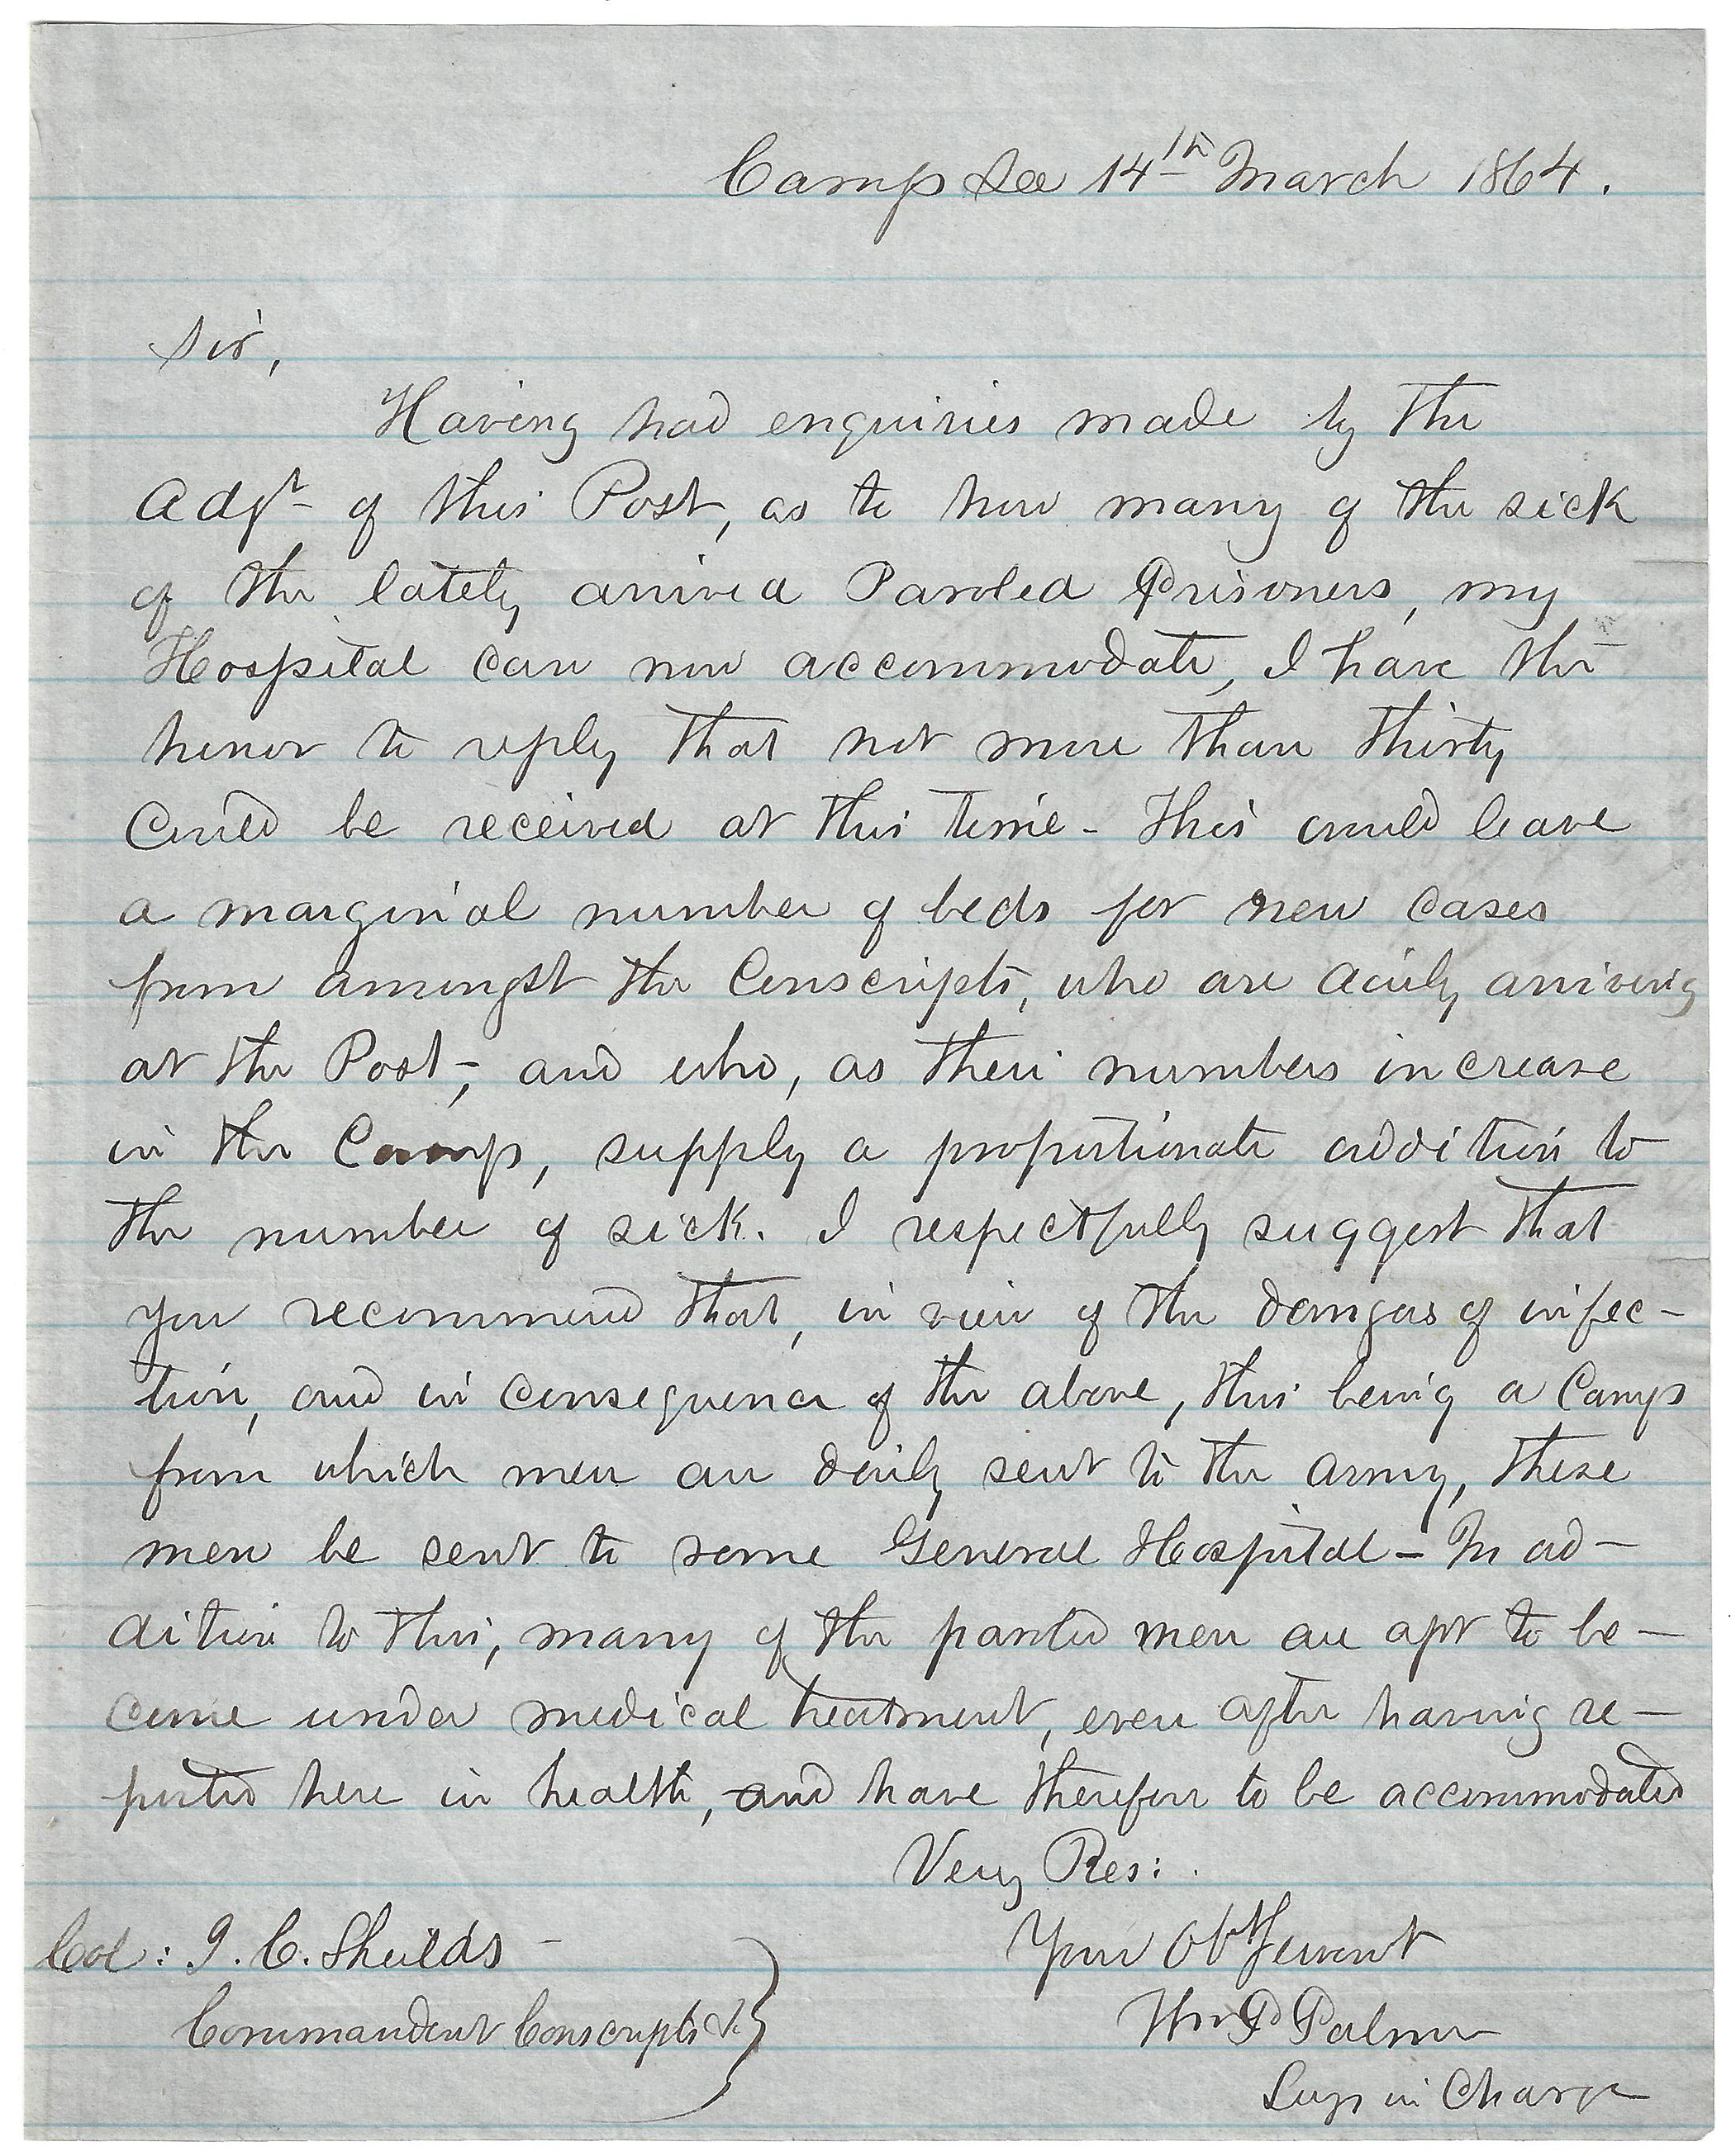 Camp Lee 14th March 1864.
Sir,
Having had enquiries made by the
Adjt of this Post, as to how many of the sick
of the lately arrived Paroled Prisoners, my
Hospital can now accommodate, I have the
honor to reply that not more than thirty
could be received at this time - This would leave
a marginal number of beds for new cases
from amongst the Conscripts, who are daily arriving
at the Post -, and who, as their numbers increase
in the Camp, supply a proportionate addition to
the number of sick. I respectfully suggest that
you recommend that, in view of the dangers of infec-
tion, and in consequence of the above, this being a Camp
from which men are daily sent to the army, these
men be sent to some General Hospital - In ad-
dition to this, many of the paroled men are apt to be-
come under medical treatment, even after having re-
ported here in health, and have therefore to be accommodated
Very Res:
Your Obt Servant
Wm P Palmer
Surg in Charge
Col: J. C. Sheilds -
Commandant Conscripts &c